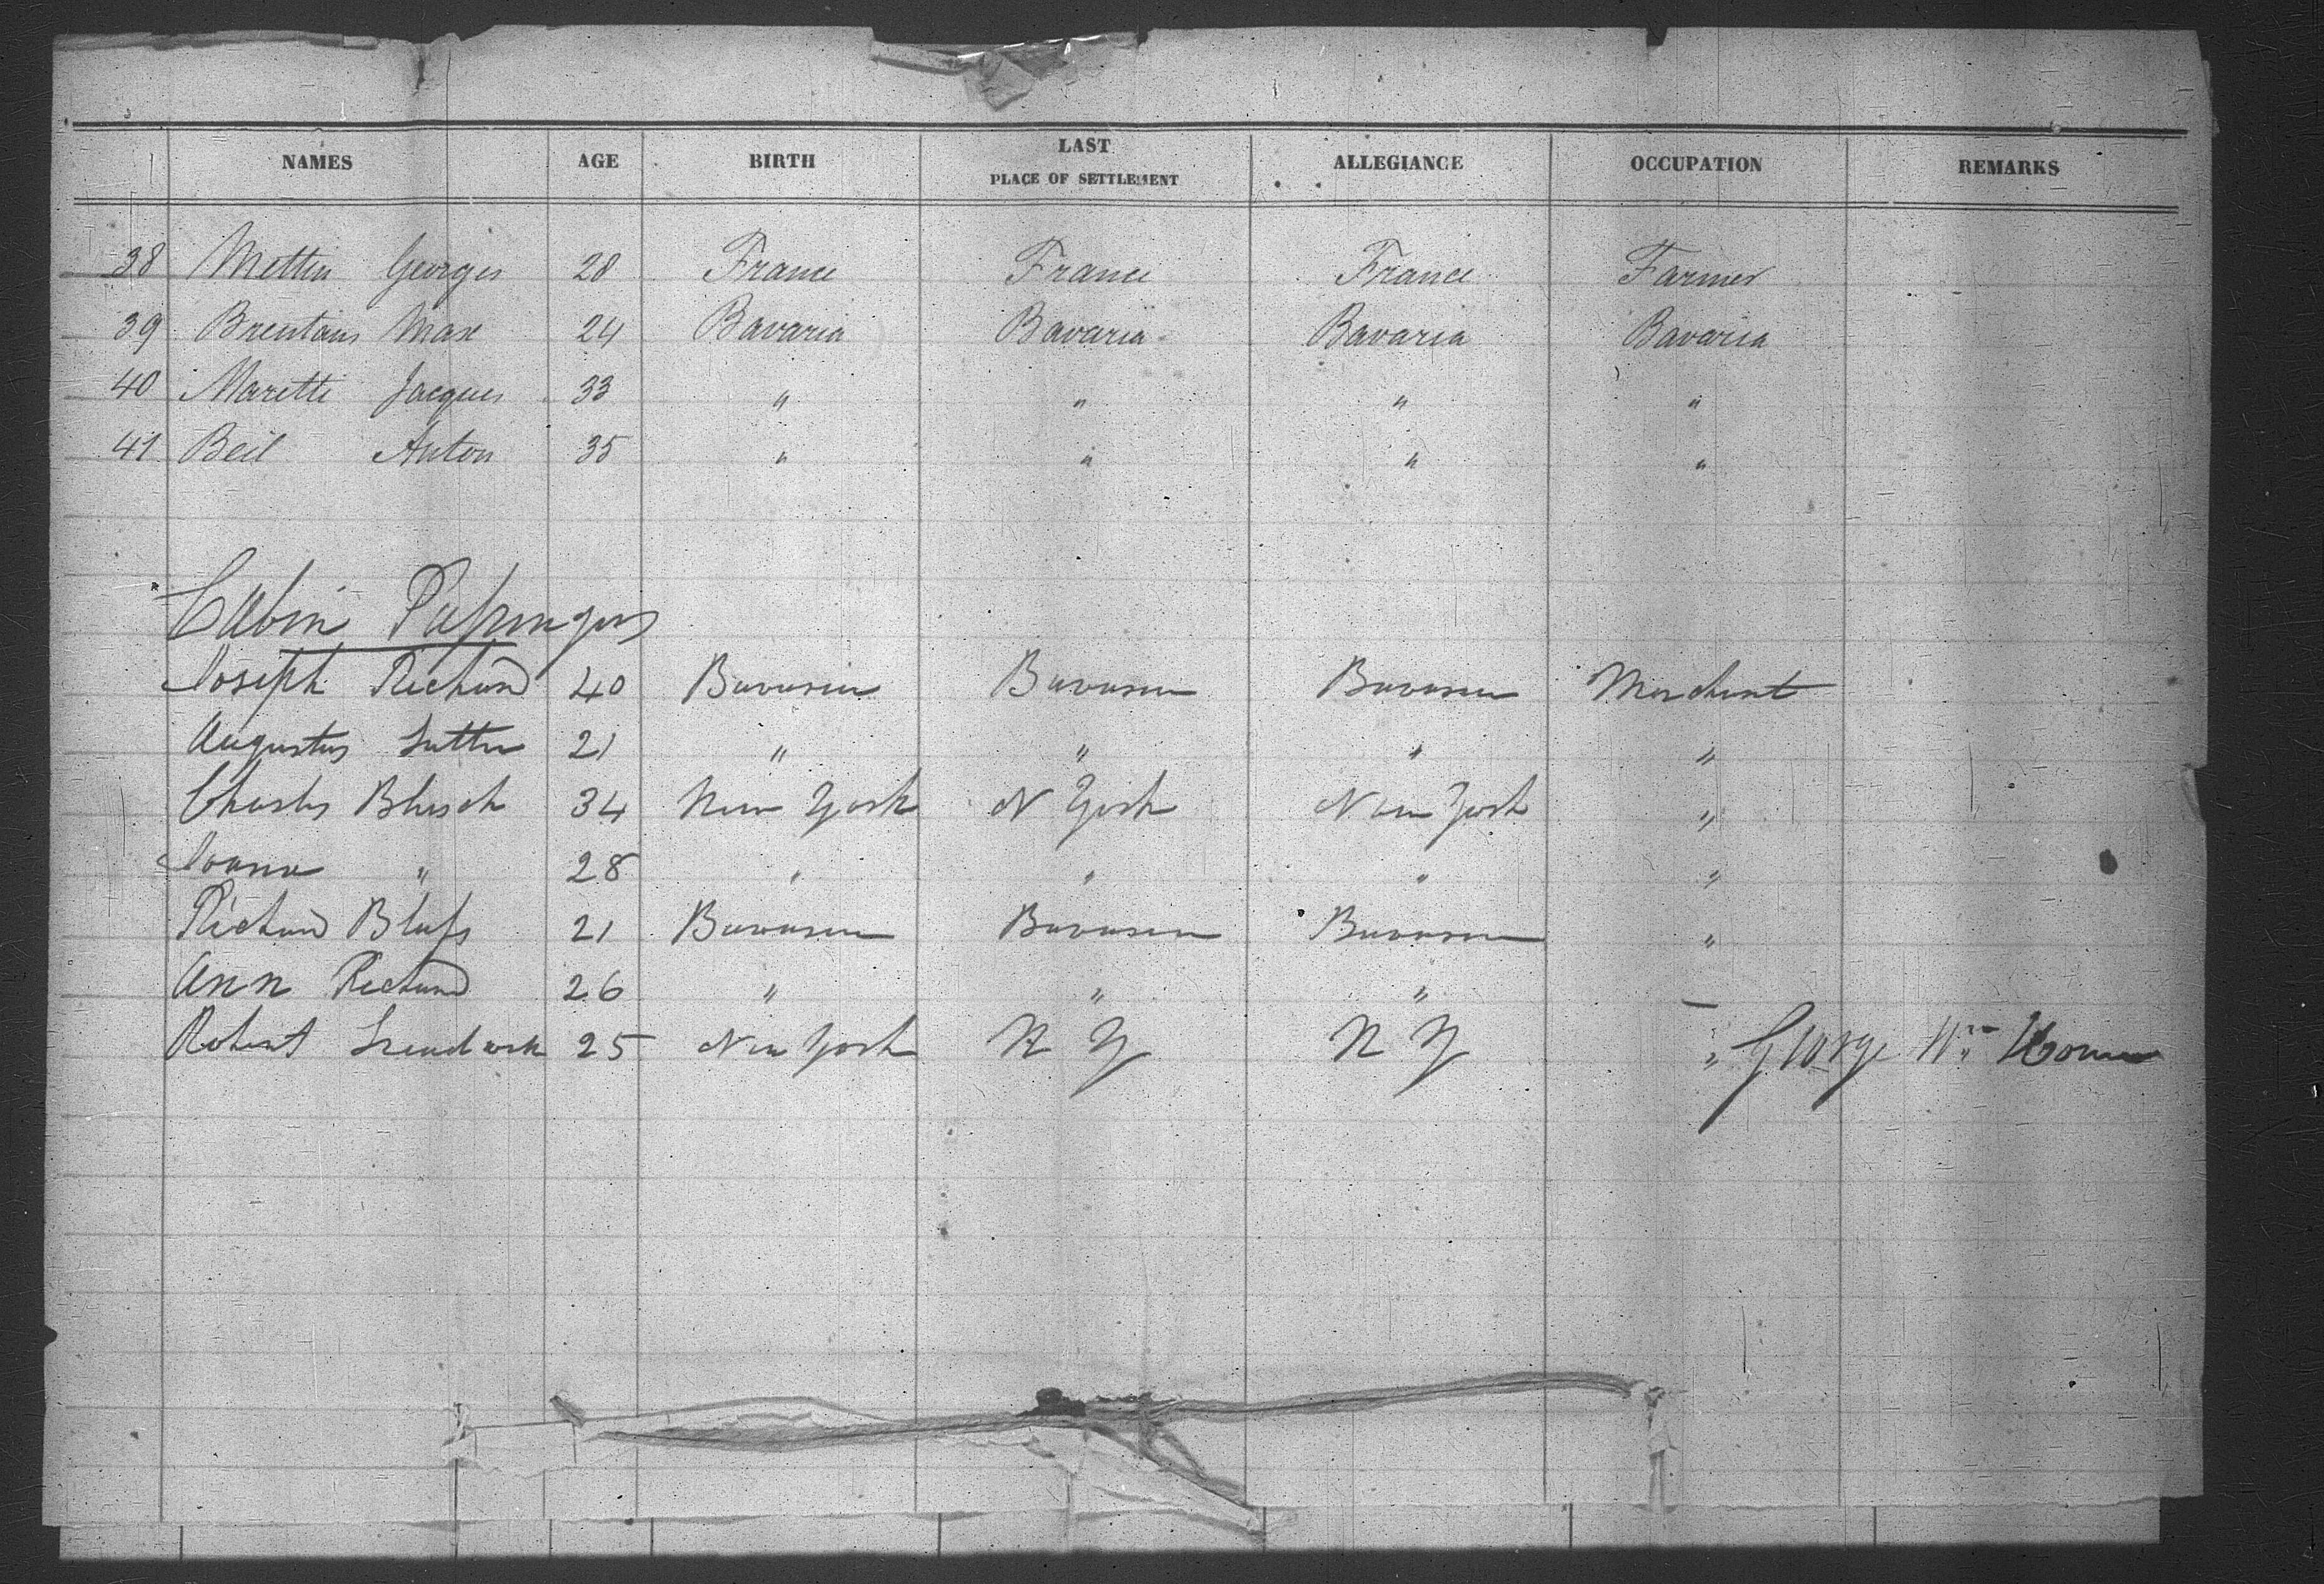 NAMES AGE BIRTH LAST PLACE OF SETTLEMENT ALLEGIANCE OCCUPATION REMARKS
38 Mettin Georges 28 France France France Farmer
39 Brentans Max 24 Bavaria Bavaria Bavaria Bavaria
40 Maretti Jacques 33 " " " "
41 Beil Anton 35 " " " "
Cabin Passengers
Joseph Richard 40 Bavaria Bavaria Bavaria Merchant
Augustus Sutter 21 " " " "
Charles Blesch 34 New York N York New York "
" 28 " " " "
Richard Blass 21 Bavaria Bavaria Bavaria "
Ann Richard 26 " " "
Robert 25 New York N Y N Y " George Wm